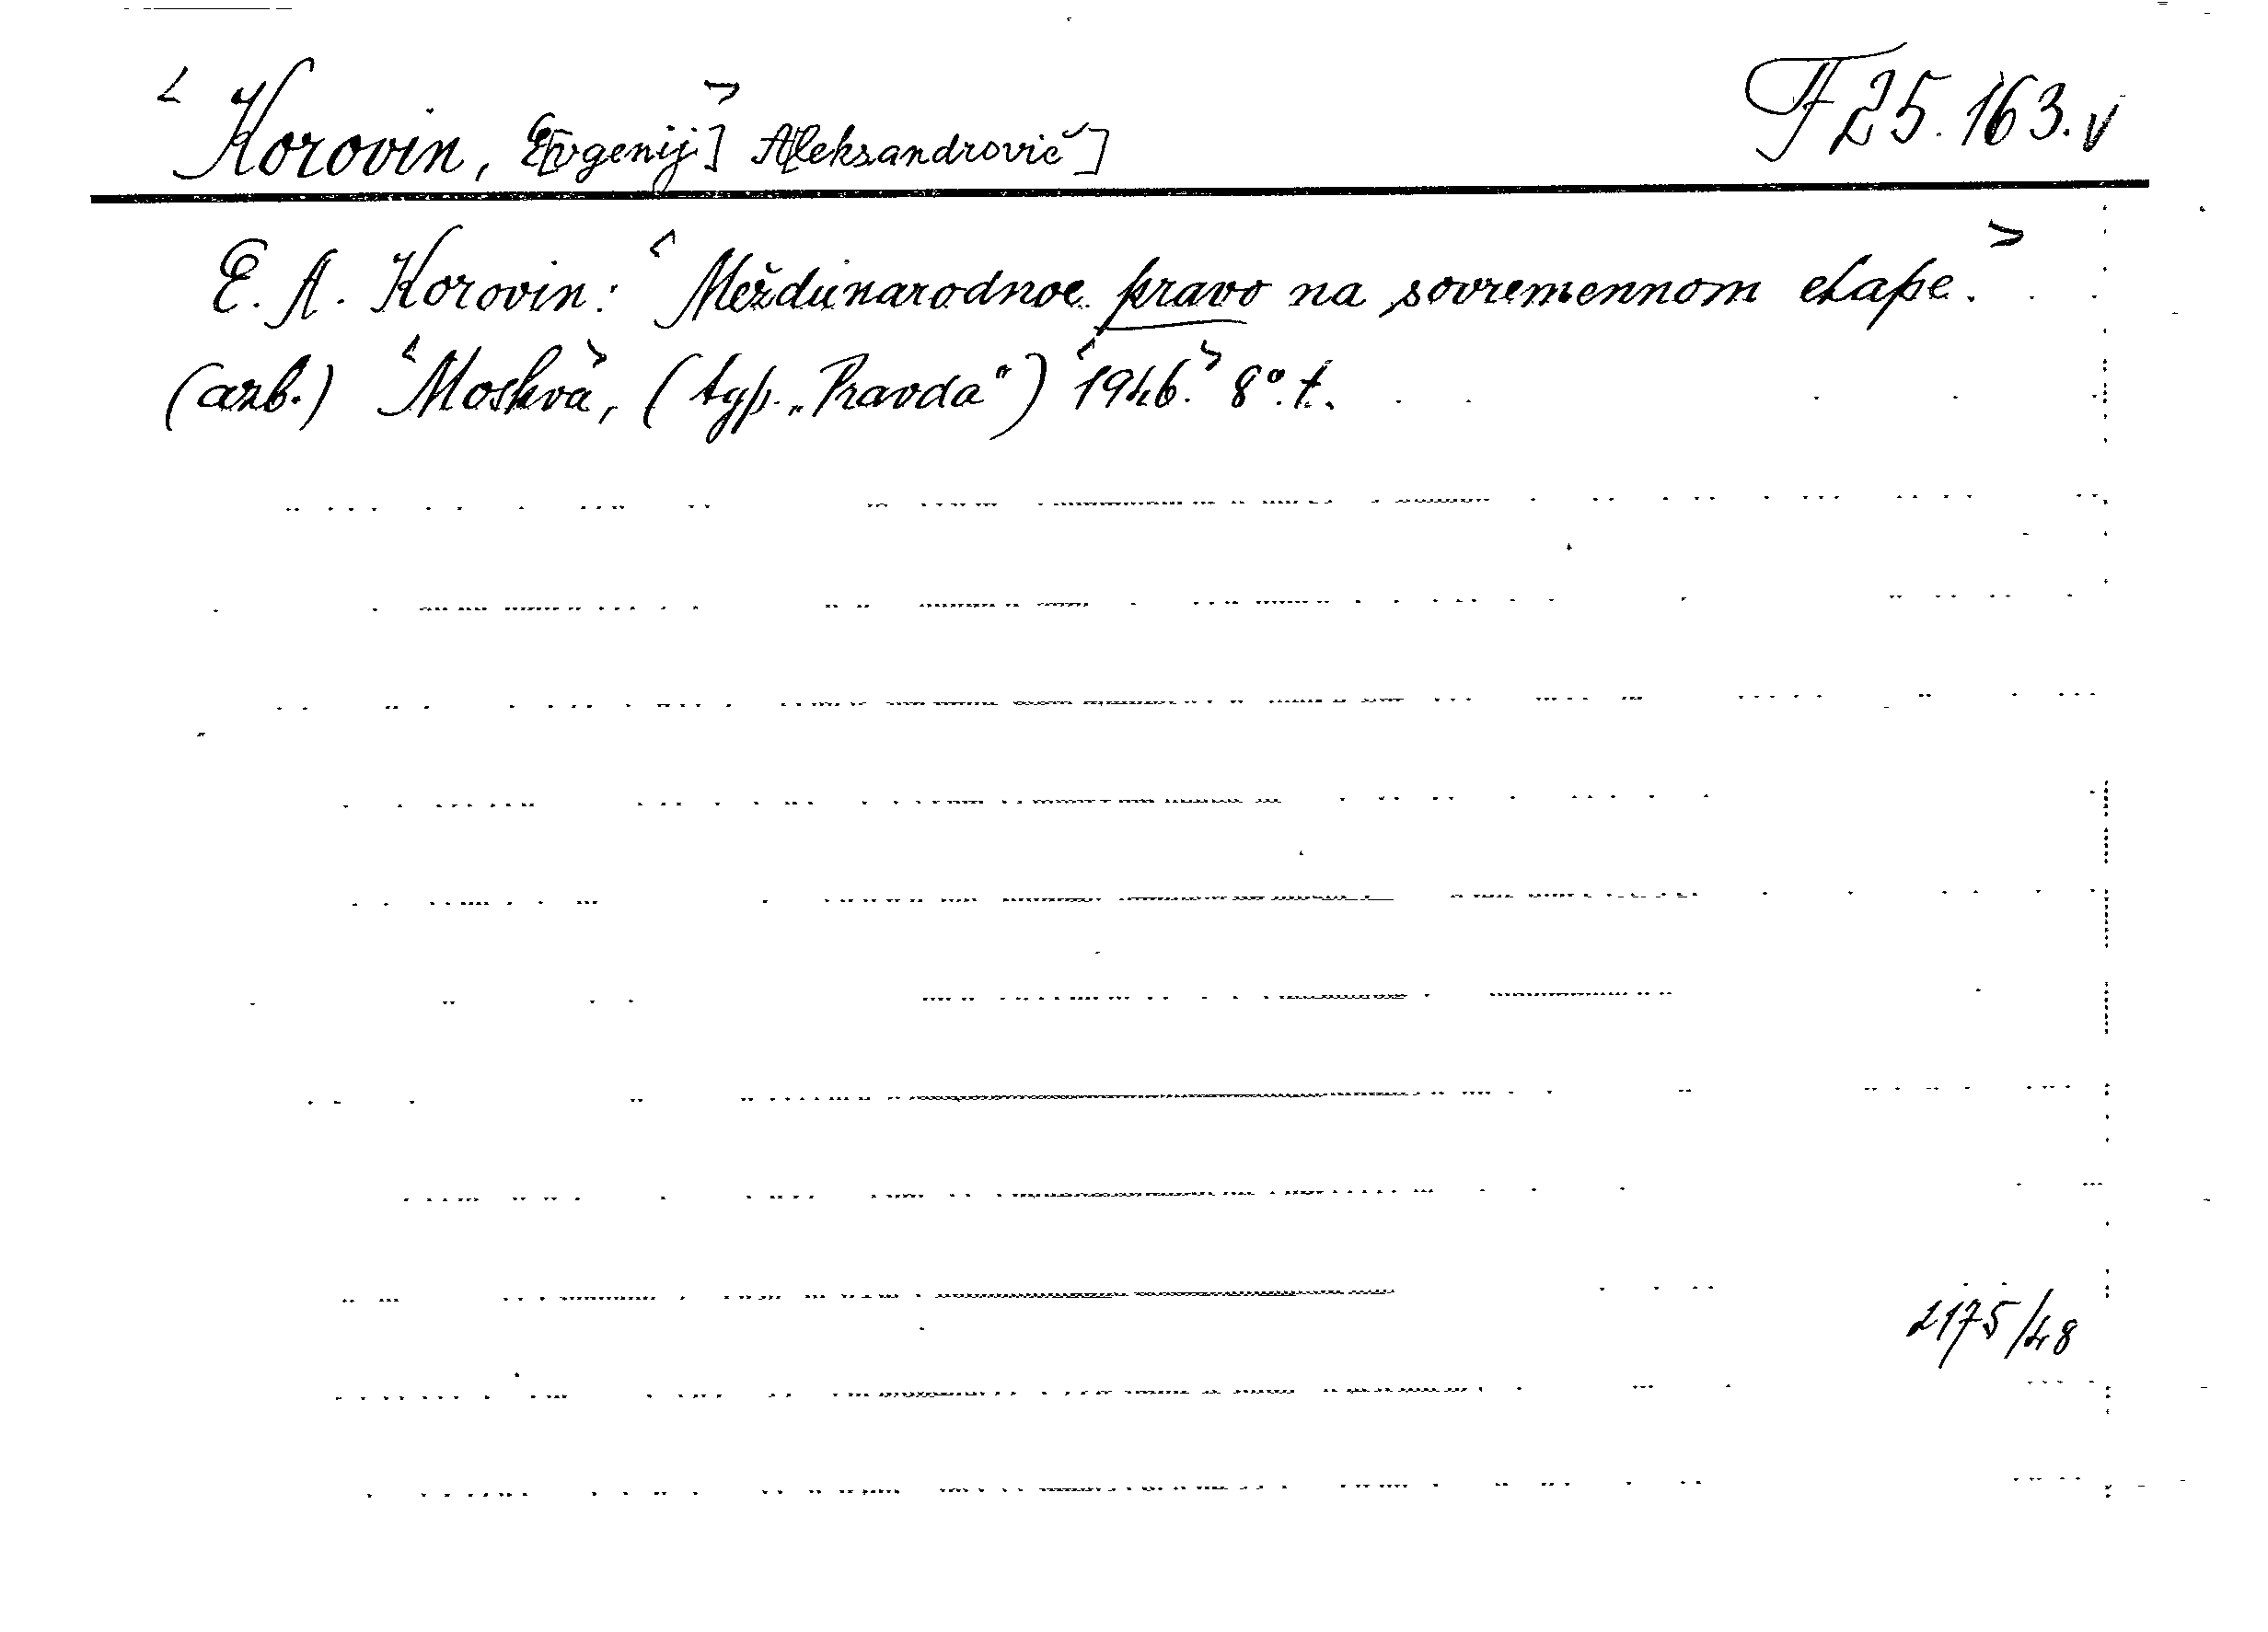 <Korovin, E[vgenij]> A[leksandrovič] F 25.163. v
E. A. Korovin: <Meždunarodnoe pravo na sovremennom etape.>
(azb.) <Moskva>, (typ. „Pravda") <1946.> 8°. t.
2175/48